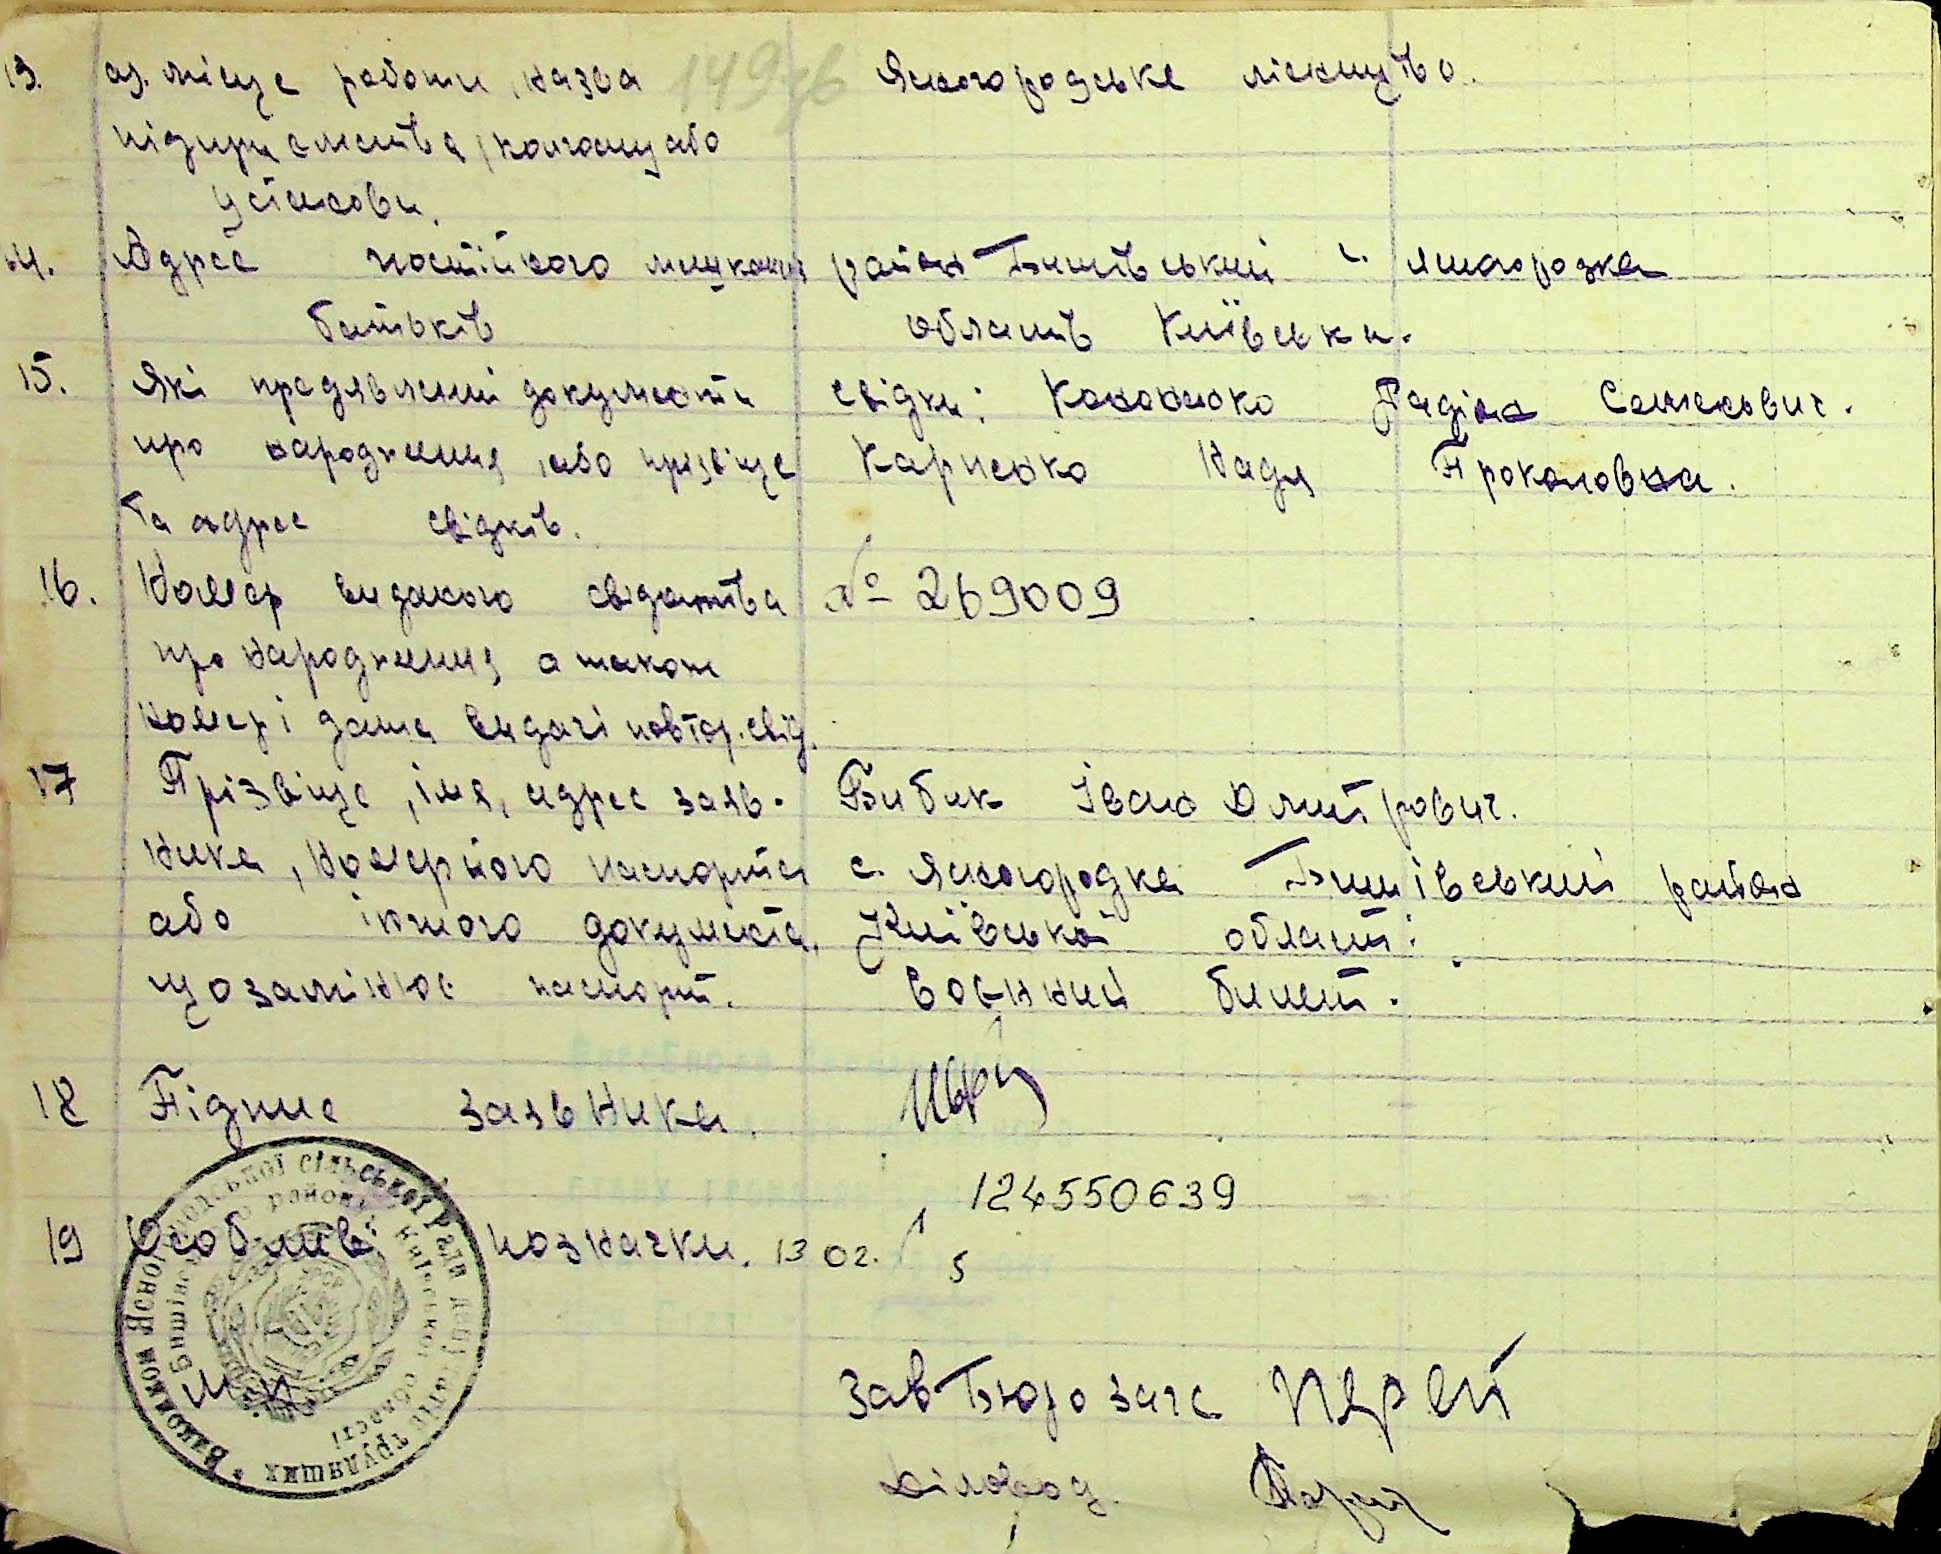 13. аз. місце роботи, назва 149зв Ясногородське лісництво.
підприємства, колгоспу або
установи.
14. Адрес постійного мешкання район Бишівський с. Ясногородка
батьків область Київська.
15. Які предявлені документи свідки: Кононенко Радіон Семенович.
про народження, або прізвище Карпенко Надя Прокоповна.
та адрес свідків.
16. Номер виданого свідоцтва № 269009
про народження а також
номер і дата видачі повтор. свід.
17 Прізвище, імя, адрес заяв- Бибик Іван Дмитрович.
ника, номер його паспорта с. Ясногородка Бишівський район
або іншого документа, Київської області.
що заміняє паспорт. Воєнний билет.
18 Підпис заявника.
124550639
19 Особливі позначки. 13 02. 5
Виконком Ясногородської сільської Ради депутатів трудящих
Бишівського району Київської області
М.П.
Зав Бюро загс
Діловод.